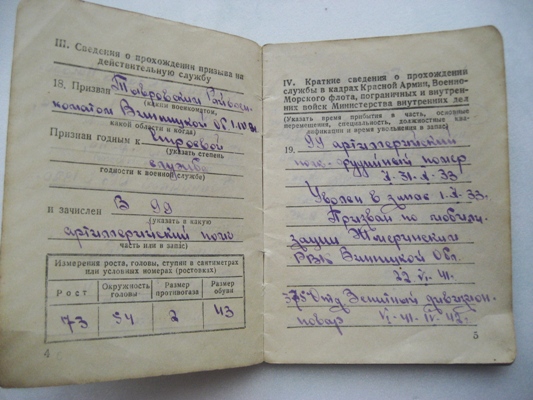 III. Сведения о прохождении призыва на
действительную службу
18. Призван Тывровским Райвоен-
(каким военкоматом,
коматом Винницкой обл
какой области и когда)
Признан годным к строевой
(указать степень
службе
годности к военной службе)
и зачислен В 99
(указать в какую
артиллерийский полк
часть или в запас)
Измерения роста, головы, ступни в сантиметрах
или условных номерах (ростовках)
Рост Окружность головы Размер противогаза Размер обуви
73 54 2 43
4
IV. Краткие сведения о прохождении
службы в кадрах Красной Армии, Военно-
Морского флота, пограничных и внутрен-
них войск Министерства внутренних дел
(Указать время прибытия в часть, основные
перемещения, специальность, должностные ква-
лификации и время увольнения в запас)
19. 99 артиллерийский
полк орудийный номер
X-31-X-33
Уволен в запас 1-X-33.
Призван по мобили-
зации Жмеринским
РВК Винницкой обл
22.VI.41.
375 Отд Зенитный дивизион
повар VI-41-IV-42.
5